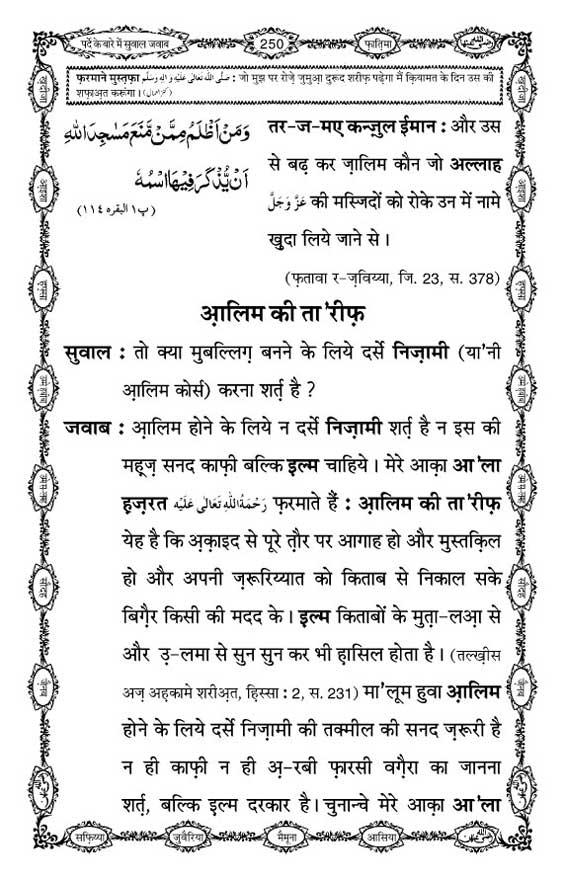 पर्दे के बारे में सुवाल जवाब 250 फ़ातिमा
फ़रमाने मुस्तफ़ा صَلَّى اللهُ تَعَالٰى عَلَيْهِ وَاٰلِهٖ وَسَلَّم : जो मुझ पर रोज़े जुमुआ दुरूद शरीफ़ पढ़ेगा मैं क़ियामत के दिन उस की
शफ़ाअ़त करूंगा।
وَمَنْ اَظْلَمُ مِمَّنْ مَّنَعَ مَسٰجِدَ اللّٰهِ
اَنْ یُّذْكَرَ فِیْهَا اسْمُهٗ
(پ۱ البقرہ ۱۱٤)
तर-ज-मए कन्ज़ुल ईमान : और उस
से बढ़ कर ज़ालिम कौन जो अल्लाह
عَزَّ وَجَلَّ की मस्जिदों को रोके उन में नामे
ख़ुदा लिये जाने से।
(फ़तावा र-ज़विय्या, जि. 23, स. 378)
आ़लिम की ता'रीफ़
सुवाल : तो क्या मुबल्लिग़ बनने के लिये दर्से निज़ामी (या'नी
आ़लिम कोर्स) करना शर्त़ है ?
जवाब : आ़लिम होने के लिये न दर्से निज़ामी शर्त़ है न इस की
मह़ज़ सनद काफ़ी बल्कि इल्म चाहिये। मेरे आक़ा आ'ला
ह़ज़रत رَحْمَةُ اللهِ تَعَالٰى عَلَيْه फ़रमाते हैं : आ़लिम की ता'रीफ़
येह है कि अ़क़ाइद से पूरे त़ौर पर आगाह हो और मुस्तक़िल
हो और अपनी ज़रूरिय्यात को किताब से निकाल सके
बिग़ैर किसी की मदद के। इल्म किताबों के मुत़ा-लआ़ से
और उ़-लमा से सुन सुन कर भी ह़ासिल होता है। (तल्ख़ीस
अज़ अह़कामे शरीअ़त, हिस्सा : 2, स. 231) मा'लूम हुवा आ़लिम
होने के लिये दर्से निज़ामी की तक्मील की सनद ज़रूरी है
न ही काफ़ी न ही अ़-रबी फ़ारसी वग़ैरा का जानना
शर्त़, बल्कि इल्म दरकार है। चुनान्चे मेरे आक़ा आ'ला
सफ़िय्या जुवैरिया मैमूना आसिया